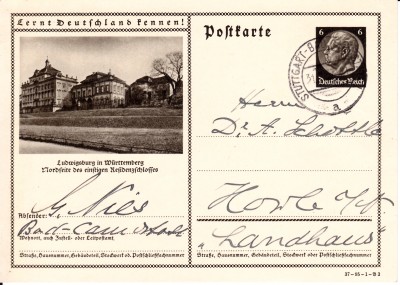 Lernt Deutschland kennen!
Ludwigsburg in Württemberg
Nordseite des einstigen Residenzschlosses
Absender: G. Nies
Bad-Cannstatt
Wohnort, auch Zustell- oder Leitpostamt
Straße, Hausnummer, Gebäudeteil, Stockwerk od. Postschließfachnummer
Postkarte
6 6
Deutsches Reich
STUTTGART-B
a
Herrn
Dr. A. Schottle
"Landhaus"
Straße, Hausnummer, Gebäudeteil, Stockwerk oder Postschließfachnummer
37-95-1-B3